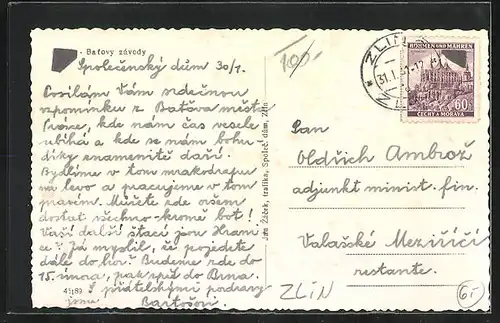 - Baťovy závody
Společenský dům 30/1.
Posílám Vám srdečnou
vzpomínku z Baťova města
Práce, kde nám čas vesele
ubíhá a kde se nám bohu-
díky znamenitě daří.
Bydlíme v tom mrakodrapu
na levo a pracujeme v tom
pravém. Můžete zde
dostat všechno kromě bot!
Vaší další štací jsou Hrani-
ce? Já myslil, že pojedete
dále do hor! Budeme zde do
15. února, pak zpět do Brna.
S přátelskými pozdravy
Bartošovi
41189
Jan Žáček, trafika, Společ. dům, Zlín
100,-
ZLÍN
31.I.
BÖHMEN UND MÄHREN
60
ČECHY A MORAVA
Pan
Oldřich Ambrož
adjunkt minist. fin.
Valašské Meziříčí
restante.
ZLÍN
6,-